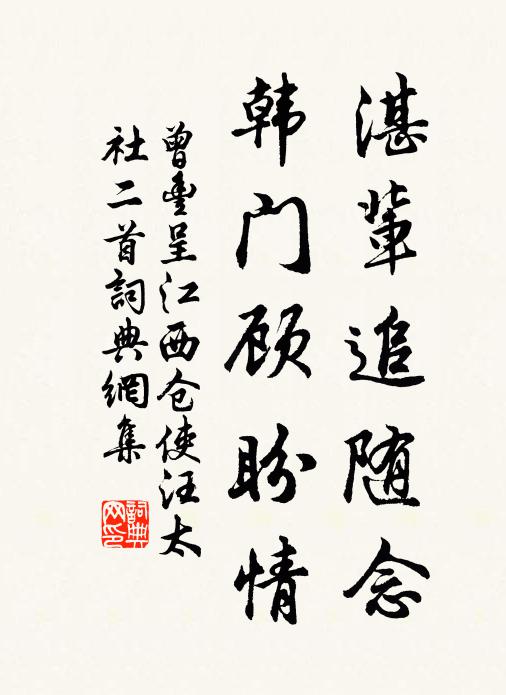 湛輩追随念
韩门顾盼情
曾豊呈江西仓使汪太
社二首詞典網集
詞典网印